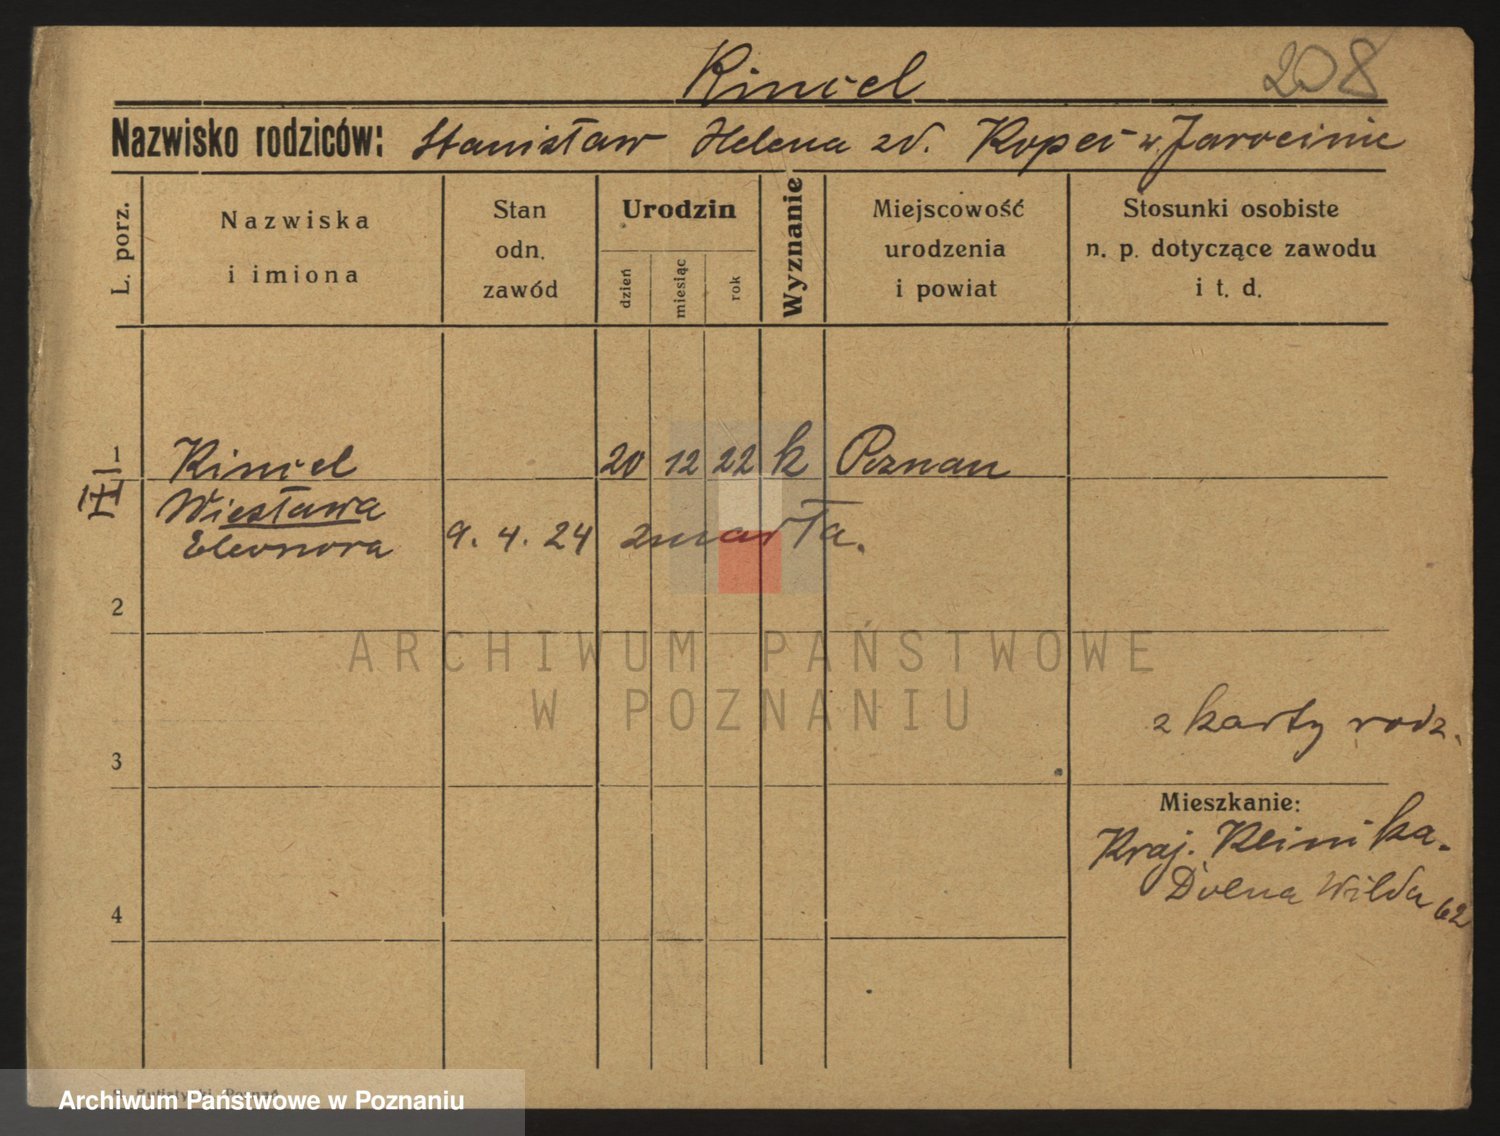 Kincel 208
Nazwisko rodziców: Stanisław Helena zd. Kopeć w Jarocinie
L. porz.
Nazwiska
i imiona
Stan
odn.
zawód
Urodzin
dzień
miesiąc
rok
Wyznanie
Miejscowość
urodzenia
i powiat
Stosunki osobiste
n. p. dotyczące zawodu
i t. d.
1 Kincel 20 12 22 k Poznan
II
Wiesława
Eleonora 9. 4. 24 zmarła.
2
ARCHIWUM PAŃSTWOWE
W POZNANIU
z karty rodz.
3
Mieszkanie:
Kraj. Klinika.
Dolna Wilda 62
4
Archiwum Państwowe w Poznaniu